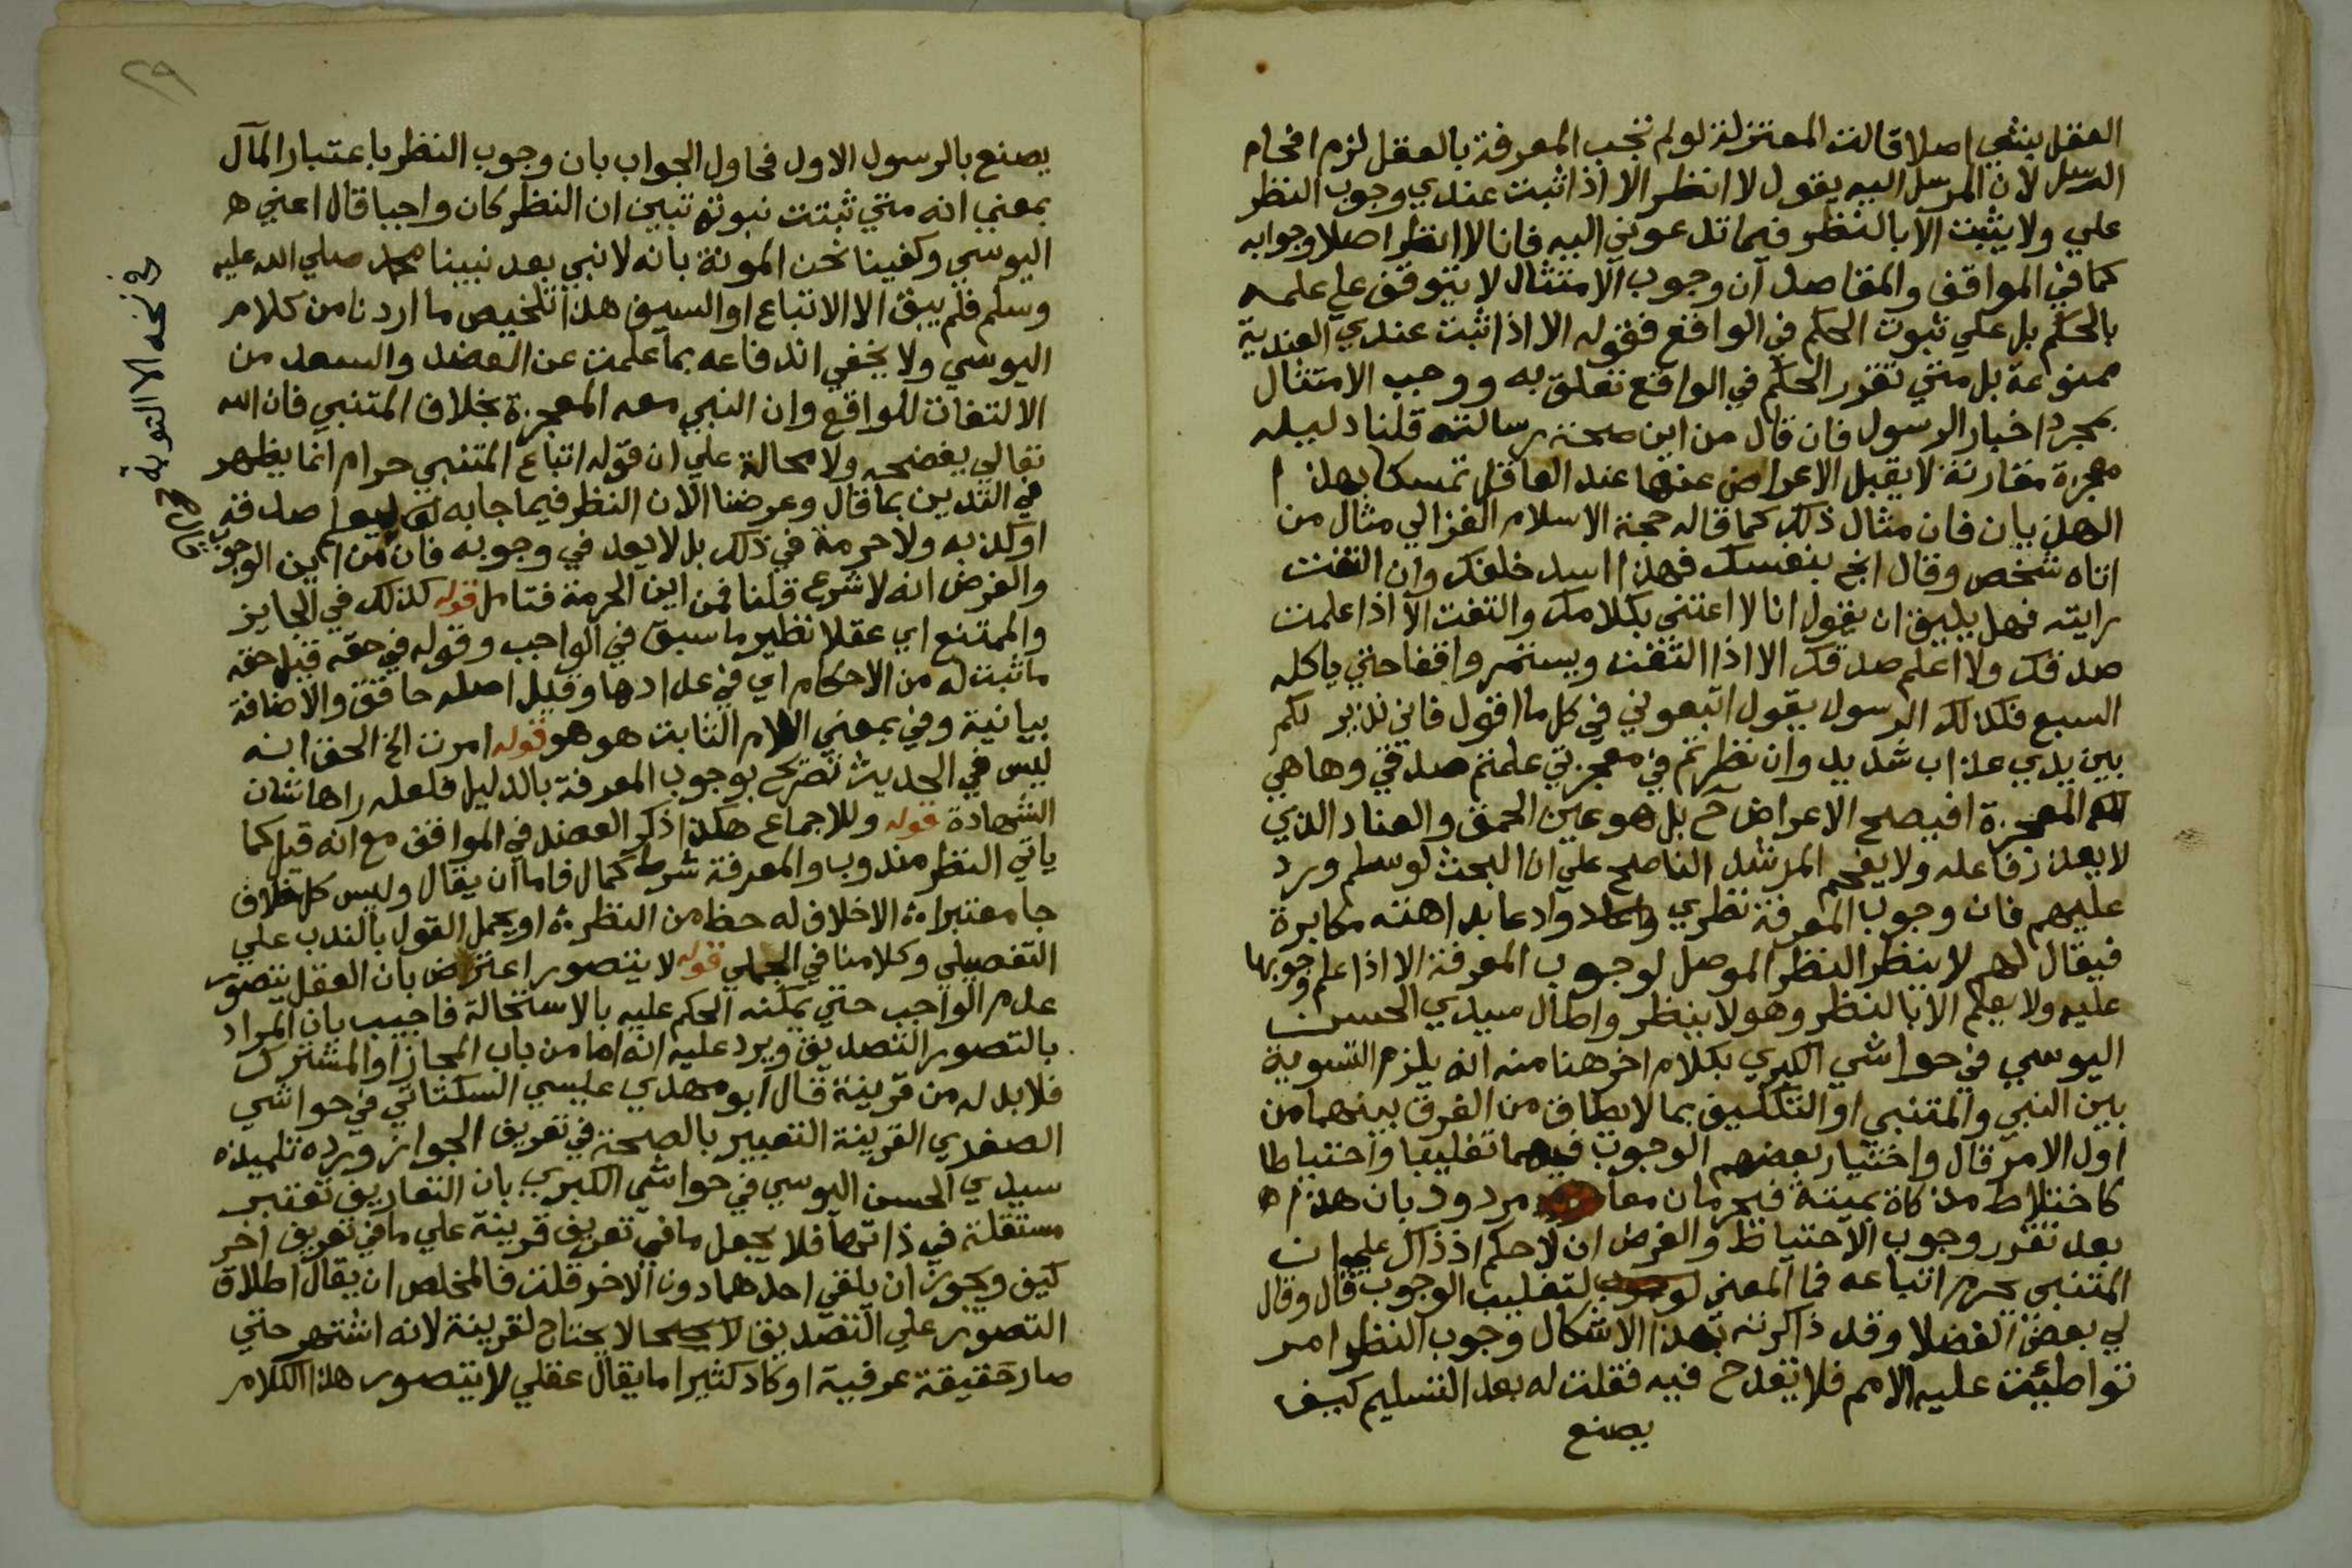 العقل بنفي اصلا قالت المعتزلة لو لم تجب المعرفة بالعقل لزم افحام
الرسل لان المرسل اليه يقول لا انظر الا اذا ثبت عندي وجوب النظر
علي ولا يثبت الا بالنظر فيما تدعوني اليه فانا لا انظر اصلا وجوابه
كما في المواقف والمقاصد ان وجوب الامتثال لا يتوقف علي علمه
بالحكم بل علي ثبوت الحكم في الواقع فقوله الا اذا ثبت عندي العندية
ممنوعة بل متي تقرر الحكم في الواقع تعلق به ووجب الامتثال
بمجرد اخبار الرسول فان قال من اين صحة رسالته قلنا دليله
معجزة مقارنة لا يقبل الاعراض عنها عند العاقل تمسكا بهذا
الهذيان فان مثال ذلك كما قاله حجة الاسلام الغزالي مثال من
اتاه شخص وقال انج بنفسك فهذا اسد خلفك وان التفت
رايته فهل يليق ان يقول انا لا اعتني بكلامك والتفت الا اذا علمت
صدقك ولا اعلم صدقك الا اذا التفت ويستمر واقفا حتي ياكله
السبع فكذلك الرسول يقول اتبعوني في كل ما اقول فاني نذير لكم
بين يدي عذاب شديد وان نظرتم في معجزتي علمتم صدقي وها هي
المعجزة افيصح الاعراض ح بل هو عين الحمق والعناد الذي
لا يعذر فاعله ولا يفحم المرشد الناصح علي ان البحث لو سلم ورد
عليهم فان وجوب المعرفة نظري وادعا بداهته مكابرة
فيقال لهم لا ينظر النظر الموصل لوجوب المعرفة الا اذا علم وجوبها
عليه ولا يعلم الا بالنظر وهو لا ينظر واطال سيدي الحسن
اليوسي في حواشي الكبري بكلام اخر هنا منه انه يلزم التسوية
بين النبي والمتنبي او التكليف بما لا يطاق من الفرق بينهما من
اول الامر قال واختيار بعضهم الوجوب فيهما تغليبا واحتياطا
كاختلاط مذكاة بميتة فيحرمان معا مردود بان هذا
بعد تقرر وجوب الاحتياط والفرض ان لا حكم اذ ذاك علي ان
المتنبي يحرم اتباعه فما المعني لتغليب الوجوب قال وقال
لي بعض الفضلا وقد ذاكرته بهذا الاشكال وجوب النظر امر
تواطئت عليه الامم فلا تقدح فيه فقلت له بعد التسليم كيف
يصنع
٢٩
يصنع بالرسول الاول فحاول الجواب بان وجوب النظر باعتبار المآل
بمعني انه متي ثبتت نبوته تبين ان النظر كان واجبا قال اعني
اليوسي وكفينا نحن المونة بانه لا نبي بعد نبينا محمد صلي الله عليه
وسلم فلم يبق الا الاتباع او السيف هذا تلخيص ما اردنا من كلام
اليوسي ولا يخفي اندفاعه بما علمت عن العضد والسعد من
الالتفات للواقع وان النبي معه المعجزة بخلاف المتنبي فان الله
تعالي يفضحه ولا محالة علي ان قوله اتباع المتنبي حرام انما يظهر
في التدين بما قال وغرضنا الان النظر فيما جا به ليعلم صدقه
او كذبه ولا حرمة في ذلك بل لا يعد في وجوبه فان من اين الوجوب
والفرض انه لا شرع قلنا فمن اين الحرمة فتامل قوله كذلك في الجايز
والممتنع اي عقلا نظير ما سبق في الواجب وقوله في حقه قيل حقه
ما ثبت له من الاحكام اي في عدادها وقيل اصله حاقق والاضافة
بيانية وفي بمعني اللام الثابت هو هو قوله امرت الخ الحق انه
ليس في الحديث تصريح بوجوب المعرفة بالدليل فلعله راها شان
الشهادة قوله وللاجماع هكذا ذكر العضد في المواقف مع انه قيل كما
ياتي النظر مندوب والمعرفة شرط كمال فاما ان يقال وليس كل خلاف
جا معتبرا ؞ الا خلاف له حظ من النظر ؞ او يحمل القول بالندب علي
التفصيلي وكلامنا في الجملي قوله لا يتصور اعتراض بان العقل يتصور
عدم الواجب حتي يمكنه الحكم عليه بالاستحالة فاجيب بان المراد
بالتصور التصديق ويرد عليه انه اما من باب المجاز او المشترك
فلا بد له من قرينة قال ابو مهدي عيسي السكتاني في حواشي
الصغري القرينة التعبير بالصحة في تعريف الجواز ورده تلميذه
سيدي الحسن اليوسي في حواشي الكبري بان التعاريف تعتبر
مستقلة في ذاتها فلا يجعل ما في تعريف قرينة علي ما في تعريف اخر
كيف ويجوز ان يلقي احدهما دون الاخر قلت فالمخلص ان يقال اطلاق
التصور علي التصديق لا يحتاج لقرينة لانه اشتهر حتي
صار حقيقة عرفية او كاد كثيرا ما يقال عقلي لا يتصور هذا الكلام